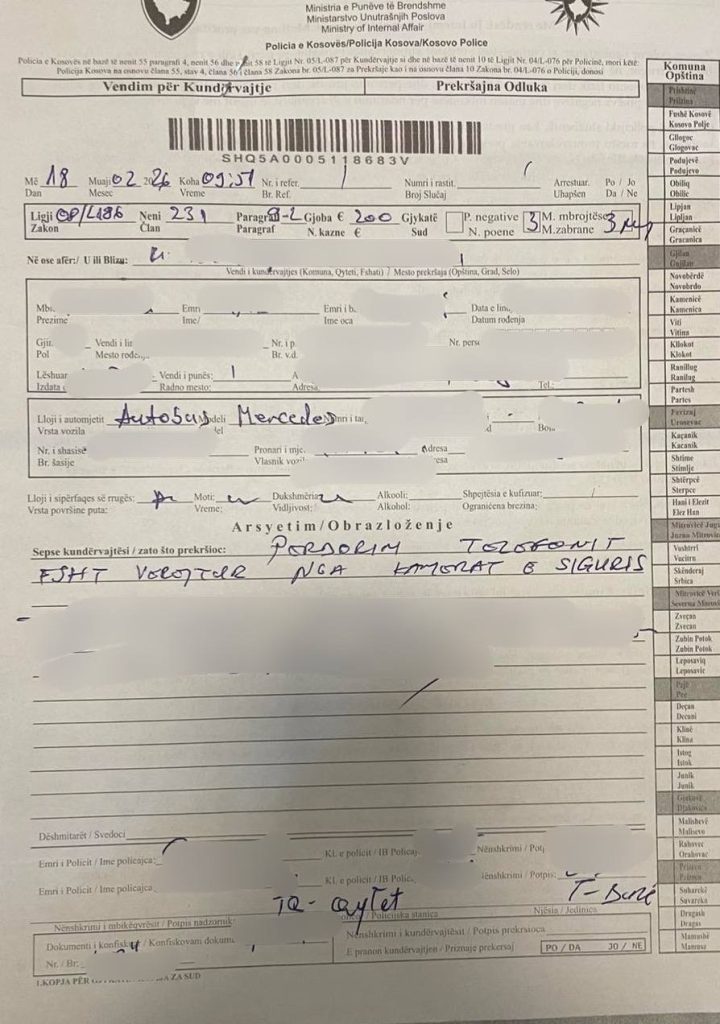 Ministria e Punëve të Brendshme
Ministarstvo Unutrašnjih Poslova
Ministry of Internal Affair
Policia e Kosovës/Policija Kosova/Kosovo Police
Policia e Kosovës në bazë të nenit 55 paragrafi 4, nenit 56 dhe nenit 58 të Ligjit Nr. 05/L-087 për Kundërvajtje si dhe në bazë të nenit 10 të Ligjit Nr. 04/L-076 për Policinë, mori këtë:
Policija Kosova na osnovu člana 55, stav 4, člana 56 i člana 58 Zakona br. 05/L-087 za Prekršaje kao i na osnovu člana 10 Zakona br. 04/L-076 o Policiji, donosi
Vendim për Kundërvajtje Prekršajna Odluka
SHQ5A0005118683V
Më 18 Muaji 02 2026 Koha 09:51 Nr. i refer. Numri i rastit. Arrestuar. Po / Jo
Dan Mesec Vreme Br. Ref. Broj Slučaj Uhapšen Da / Ne
Ligji 08/L186 Neni 231 Paragraf 8-2 Gjoba € 200 Gjykatë P. negative 3 M. mbrojtëse 3
Zakon Član Paragraf N. kazne € Sud N. poene M. zabrane
Në ose afër:/ U ili Blizu:
Vendi i kundërvajtjes (Komuna, Qyteti, Fshati) / Mesto prekršaja (Opština, Grad, Selo)
Emri Emri i b. Data e
Prezime Ime/ Ime oca Datum rođenja
Vendi i Nr. i p.
Pol Br. v.d.
Lëshuar Vendi i punës:
Izdata Radno mesto: Adresa Tel.:
Lloji i automjetit Autobus Mercedes
Vrsta vozila
Nr. i shasisë Pronari i mjc. Adresa
Br. šasije Vlasnik
Lloji i sipërfaqes së rrugës: Moti: Dukshmëria Alkooli: Shpejtësia e kufizuar:
Vrsta površine puta: Vreme: Vidljivost: Alkohol: Ograničena brezina:
Arsyetim/Obrazloženje
Sepse kundërvajtësi / zato što prekršioc: PERDORIM TELEFONIT
ESHT VEREJTUR NGA KAMERAT E SIGURIS
Dëshmitarët / Svedoci
Emri i Policit / Ime policajca: Kl. e policit / IB Policaj Nënshkrimi / Potpis
Emri i Policit / Ime policajca Kl. e policit / IB Police Nënshkrimi / Potpis:
TQ- Qytet
Nënshkrimi i mbikëqyrësit / Potpis nadzornik: / Policijska stanica Njësia / Jedinica
Dokumenti i konfiskuar / Konfiskovani dokument Nënshkrimi i kundërvajtësit / Potpis prekršioca
Nr. / Br. E pranon kundërvajtjen / Priznaje prekersaj PO / DA JO / NE
1.KOPJA PËR ZA SUD
Komuna
Opština
Prishtinë
Priština
Fushë Kosovë
Kosovo Polje
Gllogoc
Glogovac
Podujevë
Podujevo
Obiliq
Obilic
Lipjan
Lipljan
Graçanicë
Gracanica
Gjilan
Gnjilan
Novobërdë
Novobrdo
Kamenicë
Kamenica
Viti
Vitina
Kllokot
Klokot
Ranillug
Ranilug
Partesh
Partes
Ferizaj
Urosevac
Kaçanik
Kacanik
Shtime
Stimlje
Shtërpcë
Sterpce
Hani i Elezit
Elez Han
Vushtrri
Vucitrn
Skënderaj
Srbica
Zveçan
Zvecan
Zubin Potok
Zubin Potok
Leposaviq
Leposavic
Pejë
Pec
Deçan
Decani
Klinë
Klina
Istog
Istok
Junik
Junik
Gjakovë
Djakovica
Malishevë
Malisevo
Rahovec
Orahovac
Prizren
Prizren
Suharekë
Suvareka
Dragash
Dragas
Mamushë
Mamusa